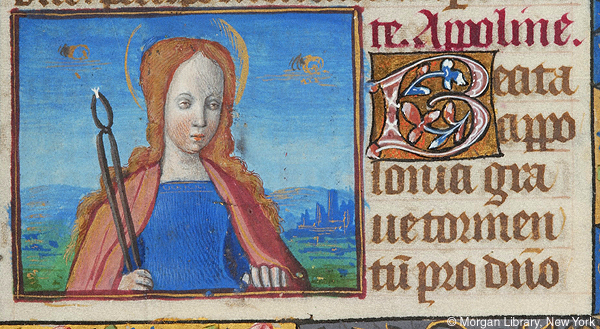 te. Appoline.
Beata
appo
lonia gra
ue tormen
tū pro dño
© Morgan Library, New York